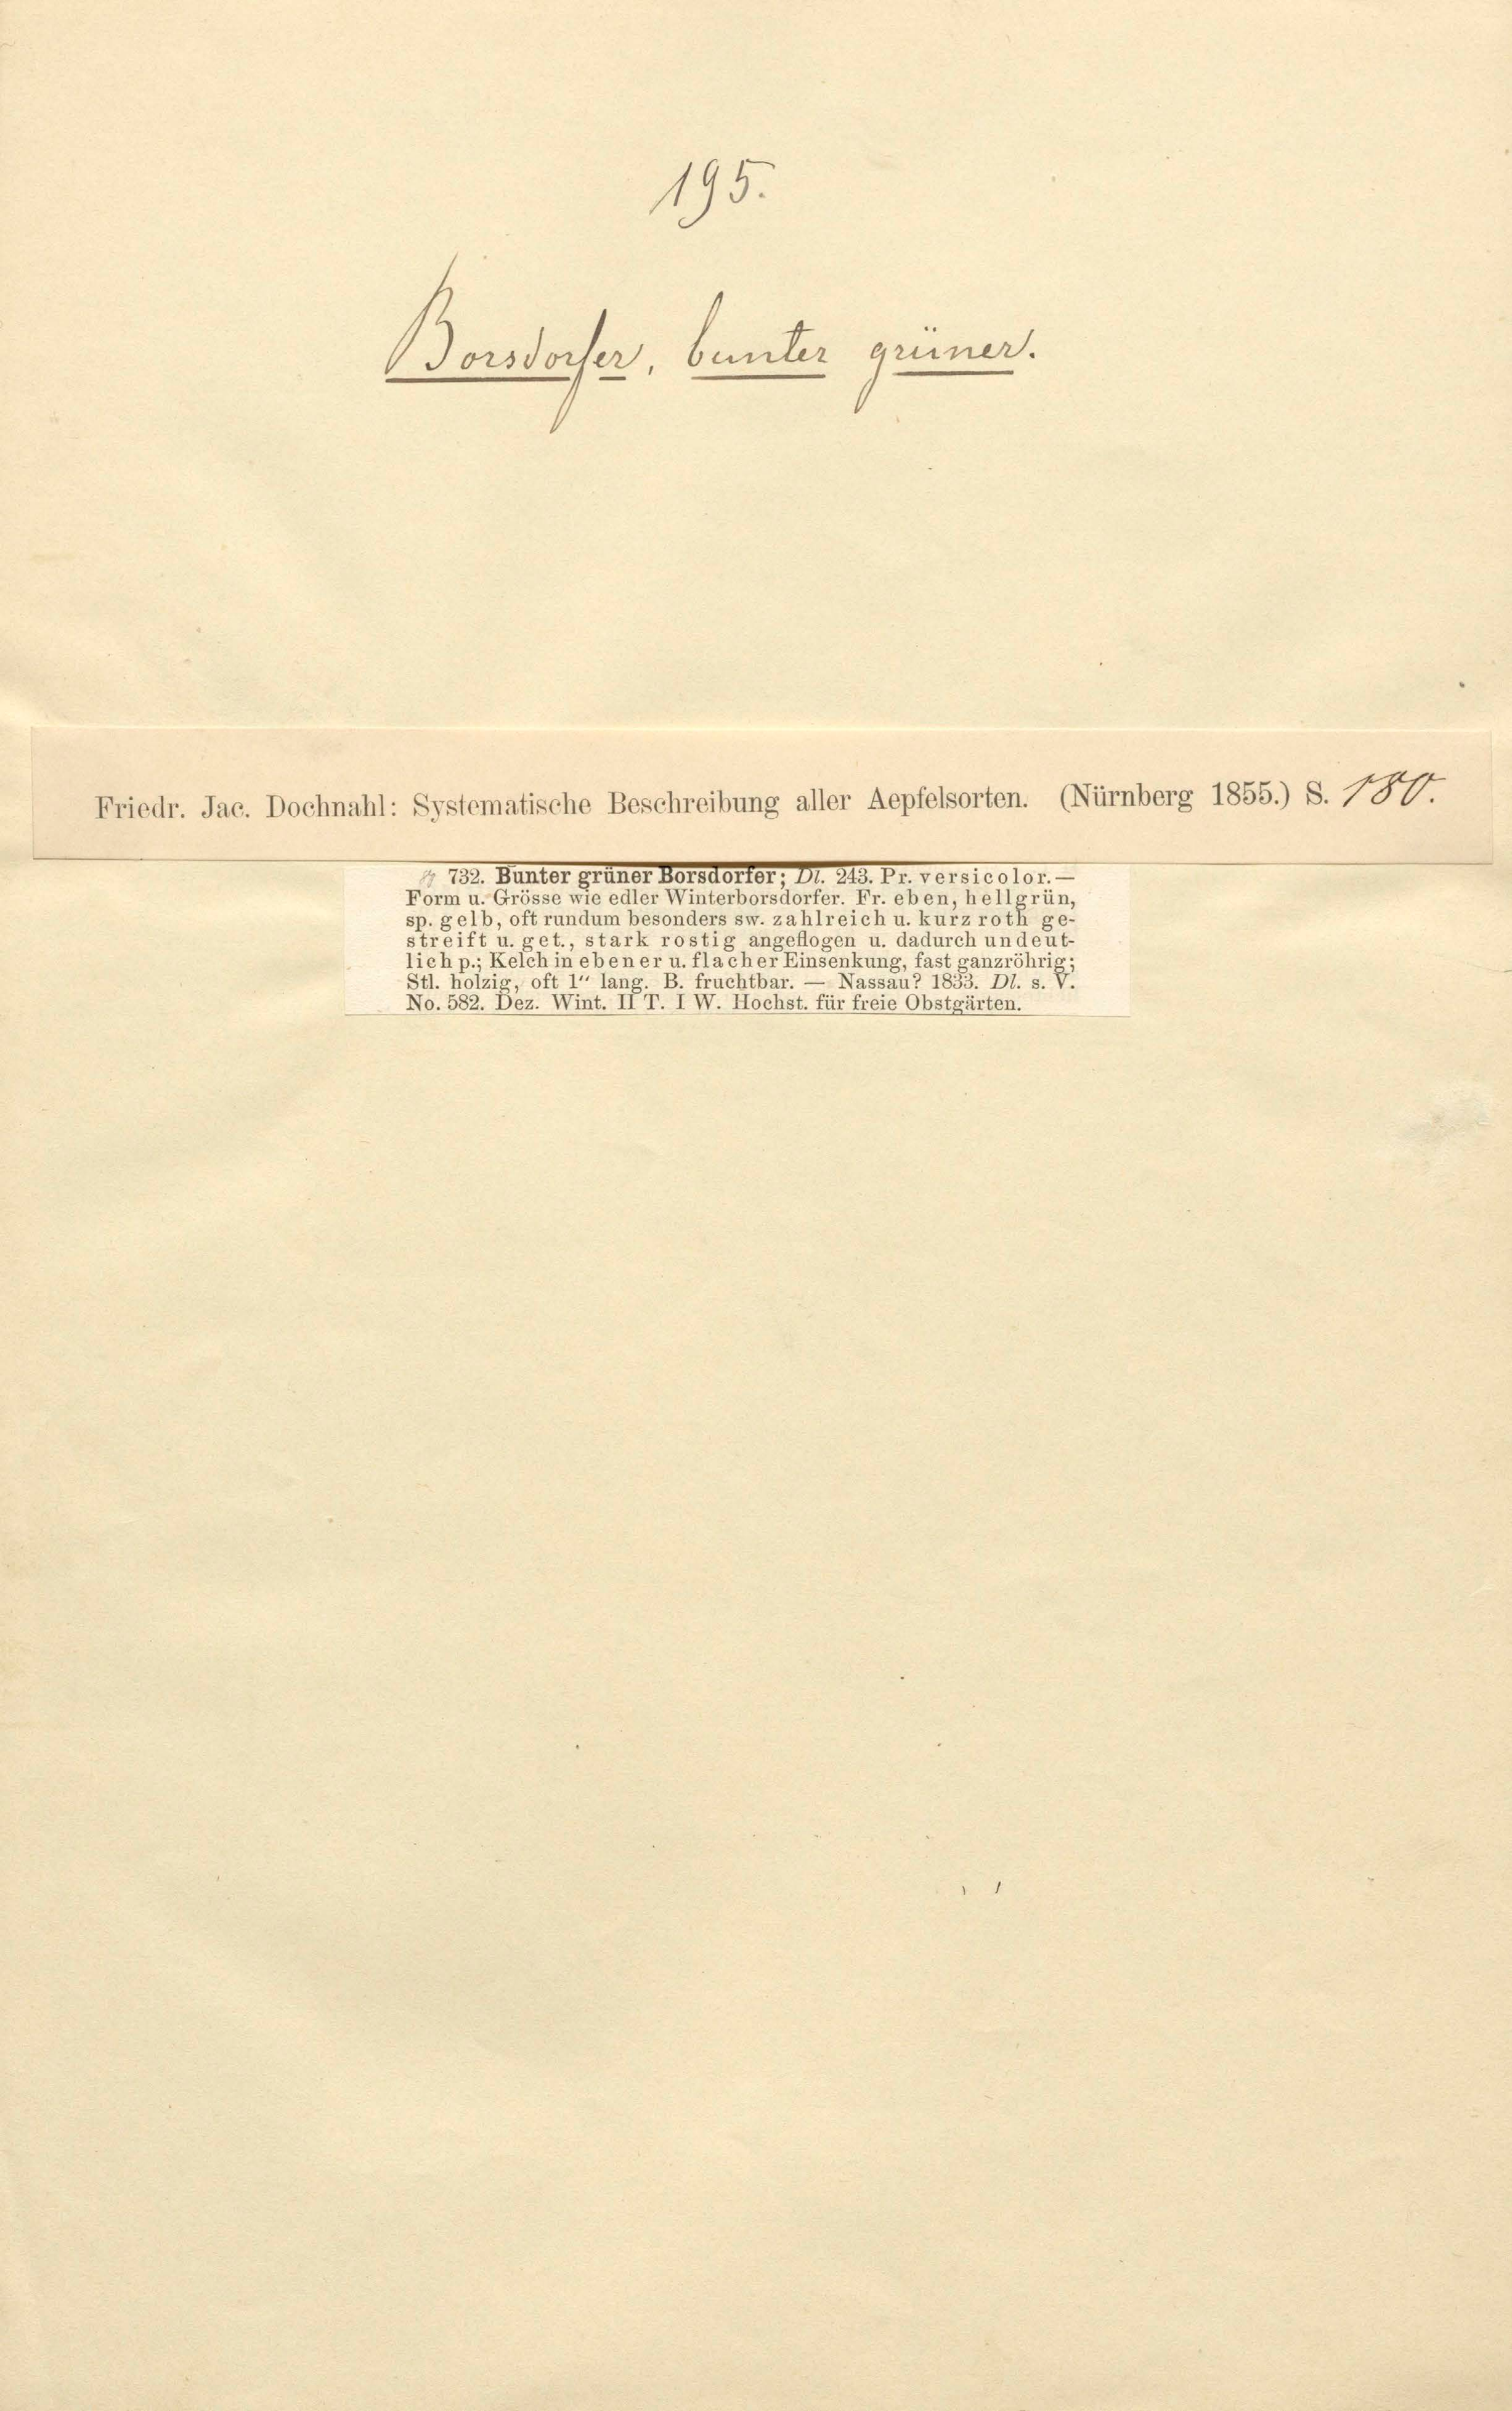 195.
Borsdorfer, bunter grüner.
Friedr. Jac. Dochnahl: Systematische Beschreibung aller Aepfelsorten. (Nürnberg 1855.) S. 180.
732. Bunter grüner Borsdorfer; Dl. 243. Pr. versicolor. —
Form u. Grösse wie edler Winterborsdorfer. Fr. eben, hellgrün,
sp. gelb, oft rundum besonders sw. zahlreich u. kurz roth ge-
streift u. get., stark rostig angeflogen u. dadurch undeut-
lich p.; Kelch in ebener u. flacher Einsenkung, fast ganzröhrig;
Stl. holzig, oft 1“ lang. B. fruchtbar. — Nassau? 1833. Dl. s. V.
No. 582. Dez. Wint. II T. I W. Hochst. für freie Obstgärten.